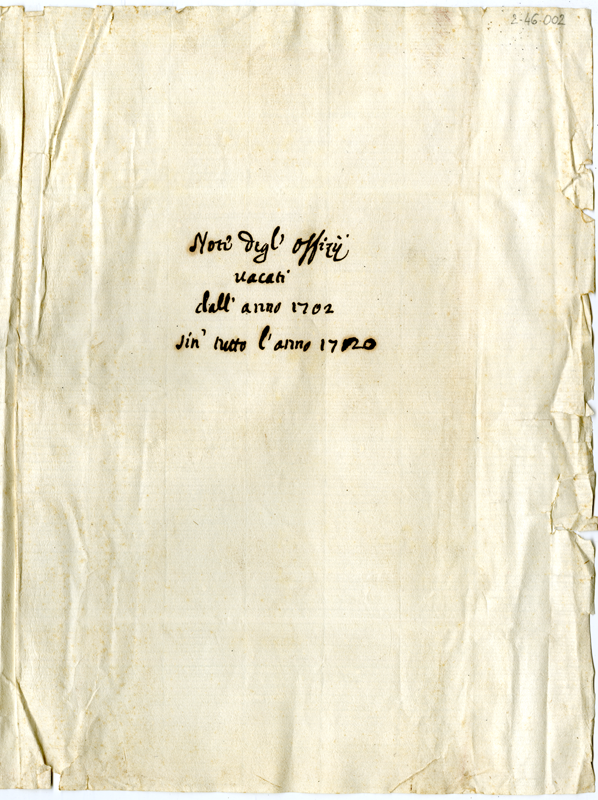 2-46-002
Note degl' offizÿ
uacati
dall' anno 1702
sin' tutto l'anno 1720